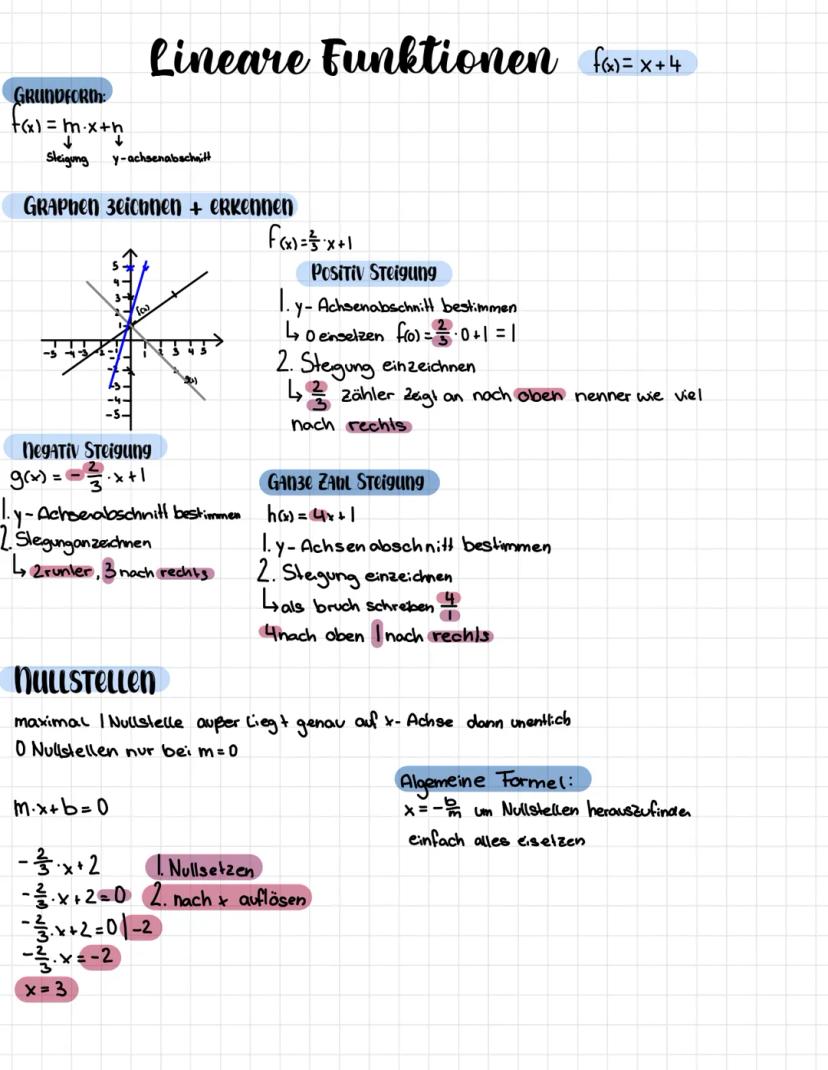 Lineare Funktionen f(x) = x + 4
GRUNDFORM:
f(x) = m·x+n
↓ ↓
Steigung y-achsenabschnitt
GRAPHEN zeichnen + erkennen
f(x) = 2/3 · x+1
Positiv Steigung
1. y- Achsenabschnitt bestimmen
↳ 0 einsetzen f(0) = 2/3 · 0+1 = 1
2. Steigung einzeichnen
↳ 2/3 zähler zeigt an noch oben nenner wie viel
nach rechts
5
4
3
2
1
-5 -4 -3 -2 -1 1 3 4 5
-3
-4
-5
f(x)
g(x)
Negativ Steigung
g(x) = - 2/3 · x+1
1. y-Achsenabschnitt bestimmen
2. Stegunganzeichnen
↳ 2 runter, 3 nach rechts
Ganze Zahl Steigung
h(x) = 4x+1
1. y-Achsenabschnitt bestimmen
2. Steigung einzeichnen
↳ als bruch schreiben 4/1
4 nach oben 1 nach rechts
NULLSTELLEN
maximal 1 Nullstelle außer liegt genau auf x- Achse dann unentlich
0 Nullstellen nur bei m=0
Algemeine Formel:
x = - b/m um Nullstellen herauszufinden
einfach alles eisetzen
m·x+b=0
- 2/3 · x+2 1. Nullsetzen
- 2/3 · x+2=0 2. nach x auflösen
- 2/3 · x+2=0 | -2
- 2/3 · x = -2
x = 3